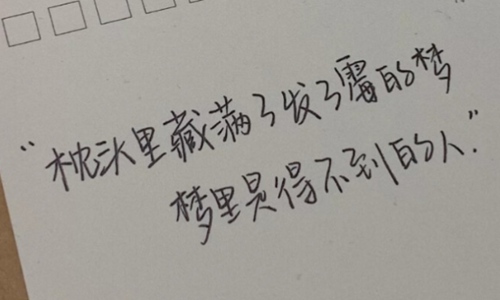 “枕头里藏满了发了霉的梦
梦里是得不到的人.”